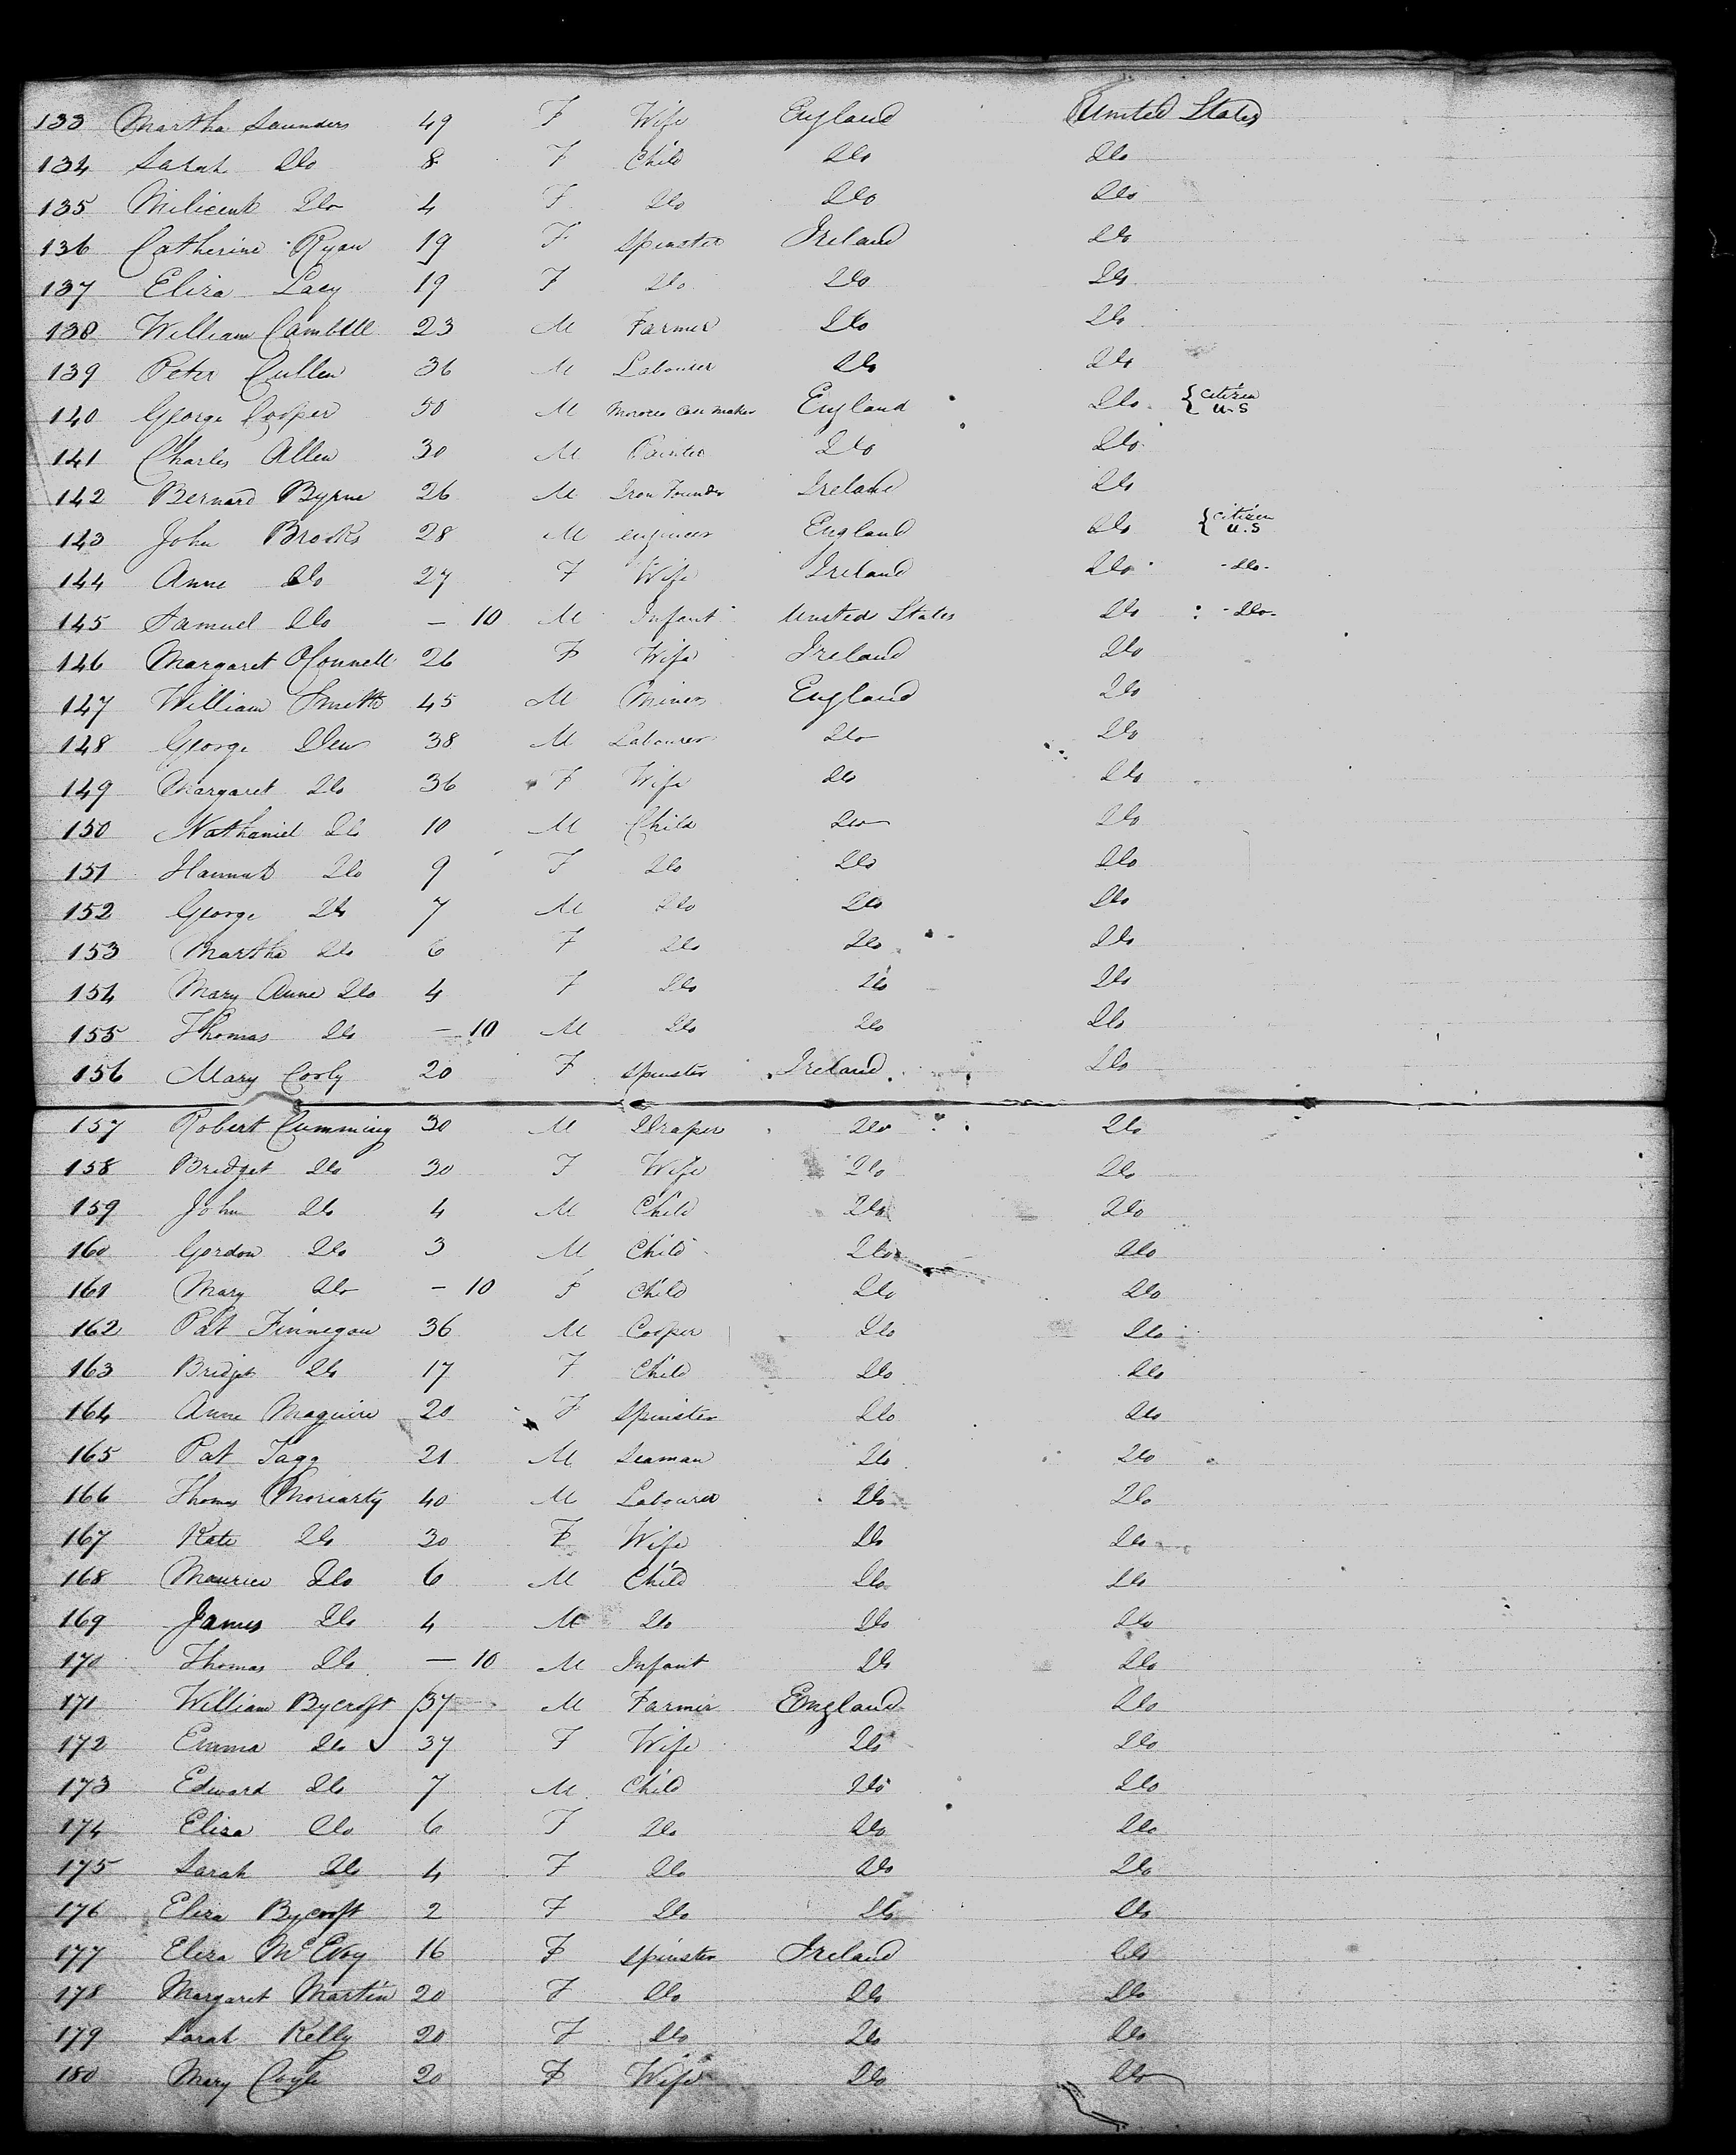 133 Martha Saunders 49 F Wife England United States
134 Sarah Do 8 F Child Do Do
135 Milicent Do 4 F Do Do Do
136 Catherine Ryan 19 F Spinster Ireland Do
137 Eliza Lacy 19 F Do Do Do
138 William Cambell 23 M Farmer Do Do
139 Peter Cullen 36 M Labourer Do Do
140 George Cooper 50 M Morocco Case Maker England Do { Citizen U.S
141 Charles Allen 30 M Painter Do Do
142 Bernard Byrne 26 M Iron Founder Ireland Do
143 John Brooks 28 M engineer England Do { Citizen U.S
144 Anne Do 27 F Wife Ireland Do - Do -
145 Samuel Do - 10 M Infant United States Do - Do -
146 Margaret OConnell 26 F Wife Ireland Do
147 William Smith 45 M Miner England Do
148 George Dew 38 M Labourer Do Do
149 Margaret Do 36 F Wife Do Do
150 Nathaniel Do 10 M Child Do Do
151 Hannah Do 9 F Do Do Do
152 George Do 7 M Do Do Do
153 Martha Do 6 F Do Do Do
154 Mary Anne Do 4 F Do Do Do
155 Thomas Do - 10 M Do Do Do
156 Mary 20 F Spinster Ireland Do
157 Robert Cumming 30 M Draper Do Do
158 Bridget Do 30 F Wife Do Do
159 John Do 4 M Child Do Do
160 Gordon Do 3 M Child Do Do
161 Mary Do - 10 F Child Do Do
162 Pat Finnegan 36 M Cooper Do Do
163 Bridget Do 17 F Child Do Do
164 Anne Maguire 20 F Spinster Do Do
165 Pat 21 M Seaman Do Do
166 Thomas Moriarty 40 M Labourer Do Do
167 Kate Do 30 F Wife Do Do
168 Maurice Do 6 M Child Do Do
169 James Do 4 M Do Do Do
170 Thomas Do - 10 M Infant Do Do
171 William Bycroft 37 M Farmer England Do
172 Emma Do 37 F Wife Do Do
173 Edward Do 7 M Child Do Do
174 Eliza Do 6 F Do Do Do
175 Sarah Do 4 F Do Do Do
176 Eliza Bycroft 2 F Do Do Do
177 Eliza McEvoy 16 F Spinster Ireland Do
178 Margaret Martin 20 F Do Do Do
179 Sarah Kelly 20 F Do Do Do
180 Mary Coyle 20 F Wife Do Do